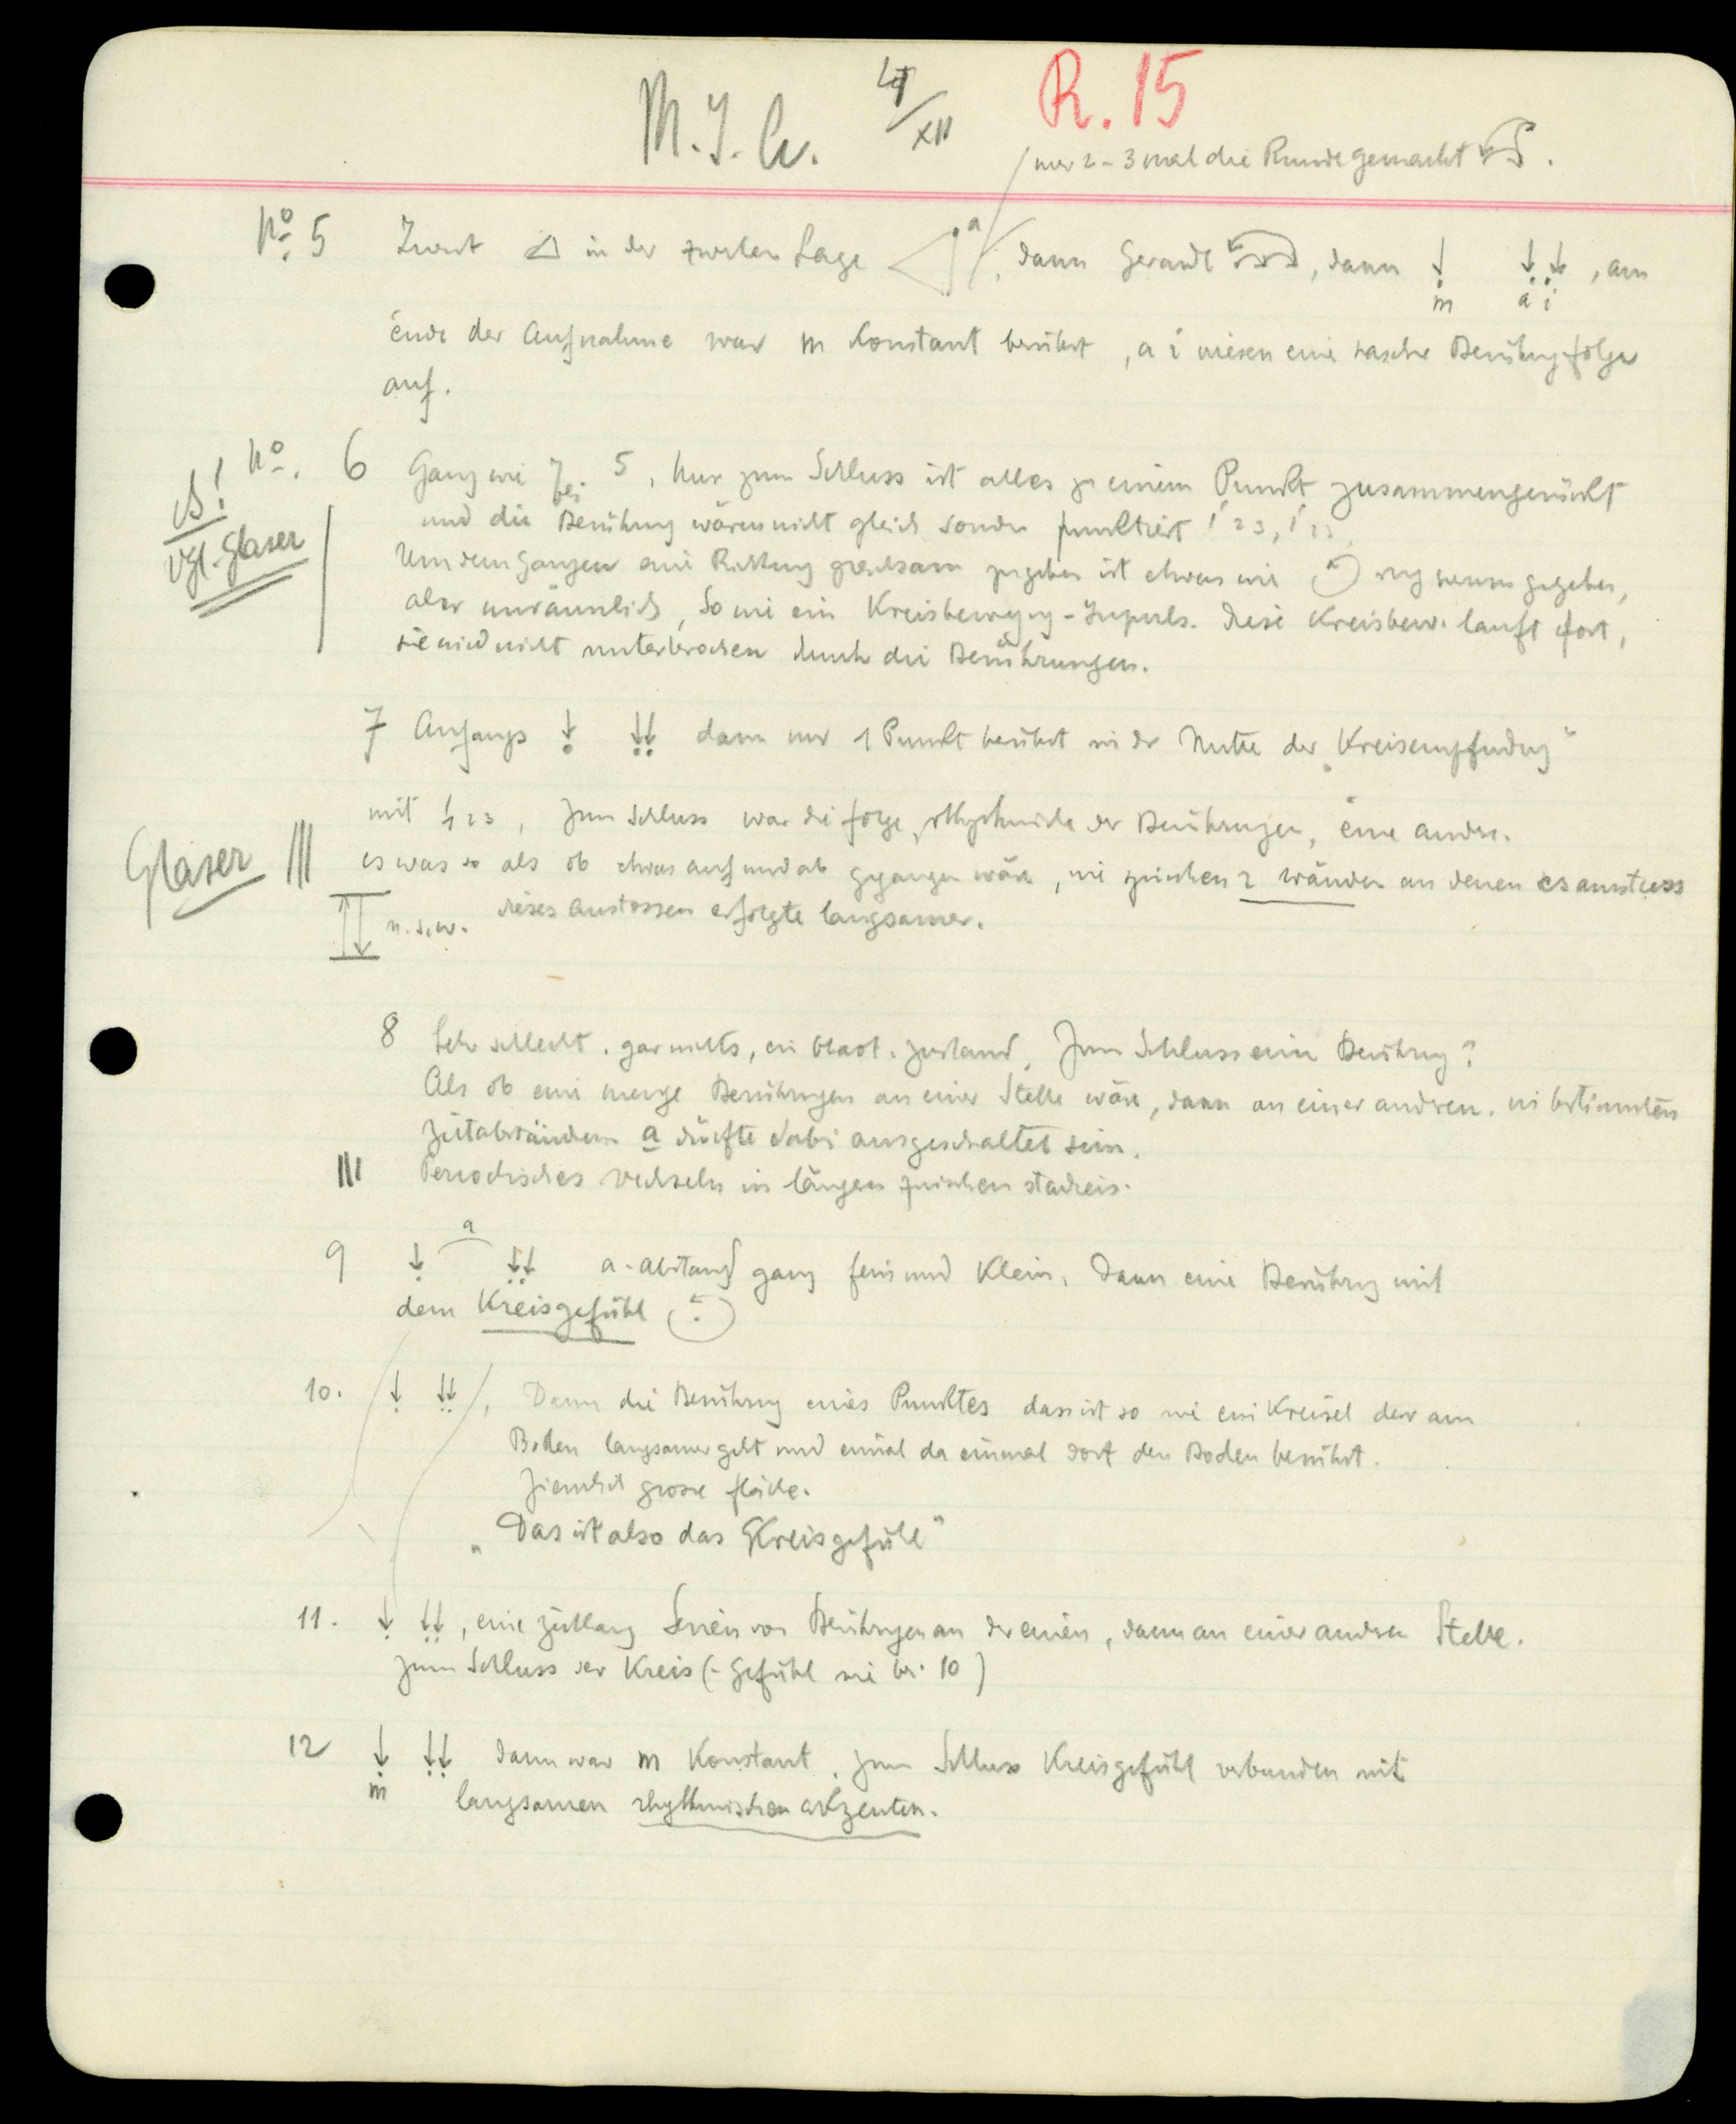 M.J.G. 4/XII R. 15
nur 2-3 mal die Runde gemacht
No. 5 Zuerst △ in der zweiten Lage a, dann Gerade, dann ↓ ↓↓, am
m a i
ende der Aufnahme war m Constant berührt, a i wiesen eine rasche Berührgfolge
auf.
No. 6 Ganz wie bei 5, Nur zum Schluss ist alles zu einem Punkt zusammengerückt
vgl. Glaser
und die Berührung wären nicht gleich sondern punktiert 1 2 3, 1 2 3
Um dem Ganzen eine Richtung gleichsam zu geben ist etwas wie gegeben,
aber unräumlich, So wie ein Kreisbewegung-Impuls. Diese Kreisbew. lauft fort,
sie wird nicht unterbrochen durch die Berührungen.
7 Anfangs ↓ ↓↓ dann nur 1 Punkt berührt in der Mitte der „Kreisempfindung"
mit 1 2 3, Zum Schluss war die folge, rhythmische der Berührungen, eine andre.
Glaser |||
es was so als ob etwas auf und ab gegangen wäre, wie zwischen 2 wänden an denen es anstiess
u.s.w. dieses Anstossen erfolgte langsamer.
8 Sehr schlecht. gar nichts, ein Zustand. Zum Schluss eine Berührung?
Als ob eine menge Berührungen an einer Stelle wäre, dann an einer andren. in bestimmten
Zeitabständen a dürfte dabei ausgeschaltet sein.
||| Periodisches wechseln in längeren zwischen stadien.
9 ↓ a ↓↓ a-abstand ganz fein und Klein. Dann eine Berührung mit
dem Kreisgefühl
10. ↓ ↓↓, Dann die Berührung eines Punktes dass ist so wie ein Kreisel der am
Boden langsamer geht und einmal da einmal dort den Boden berührt.
Ziemlich grosse fläche.
„Das ist also das Kreisgefühl"
11. ↓ ↓↓, eine Zeitlang Serien von Berührungen an der einen, dann an einer andren Stelle.
zum Schluss der Kreis (-Gefühl wie bei 10)
12 ↓ ↓↓ dann war m Konstant. zum Schluss Kreisgefühl verbunden mit
m
langsamen rhythmischen akzenten.